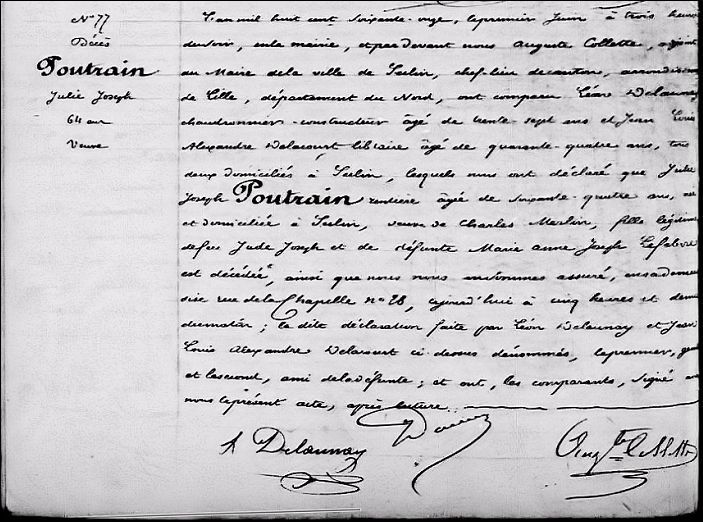 N° 77
Décès
Poutrain
Julie Joseph
64 ans
Veuve
L'an mil huit cent soixante-onze, le premier Juin à trois heures
du soir, en la mairie, et par devant nous Auguste Collette, adjoint
au Maire de la ville de Seclin, chef-lieu de canton, arrondissement
de Lille, département du Nord, ont comparu Léon Delaunay
chaudronnier-constructeur âgé de trente-sept ans et Jean Louis
Alexandre Delacourt libraire âgé de quarante-quatre ans, tous
deux domiciliés à Seclin, lesquels nous ont déclaré que Julie
Joseph Poutrain rentière âgée de soixante-quatre ans, née
et domiciliée à Seclin, veuve de Charles Merlin, fille légitime
de feu Jude Joseph et de défunte Marie Anne Joseph Lefebvre
est décédée, ainsi que nous nous en sommes assuré, en sa demeure
sise rue de la Chapelle n° 28, aujourd'hui à cinq heures et demie
du matin; la dite déclaration faite par Léon Delaunay et Jean
Louis Alexandre Delacourt ci-dessus dénommés, le premier,
et le second, ami de la défunte; et ont, les comparants, signé avec
nous le présent acte, après lecture.
Delaunay